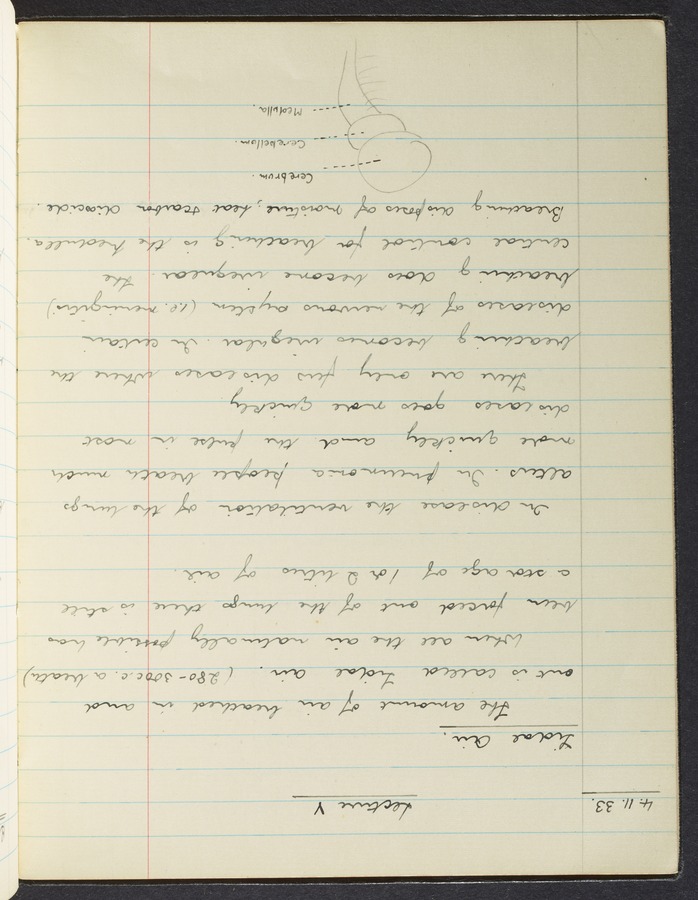 4.11.33.
Lecture V
Tidal Air.
The amount of air breathed in and
out is called tidal air. (280-300c.c. a breath)
When all the air naturally possible has
been forced out of the lungs there is still
a storage of 1 or 2 litres of air.
In disease the ventilation of the lungs
alters. In pneumonia people breath much
more quickly and the pulse in most
diseases goes more quickly
There are only few diseases where the
breathing becomes irregular. In certain
diseases of the nervous system (i.e. meningitis)
breathing does become irregular. The
central control for breathing is the medulla.
Breathing disposes of moisture, heat & carbon dioxide.
Cerebrum.
Cerebellum.
Medulla.